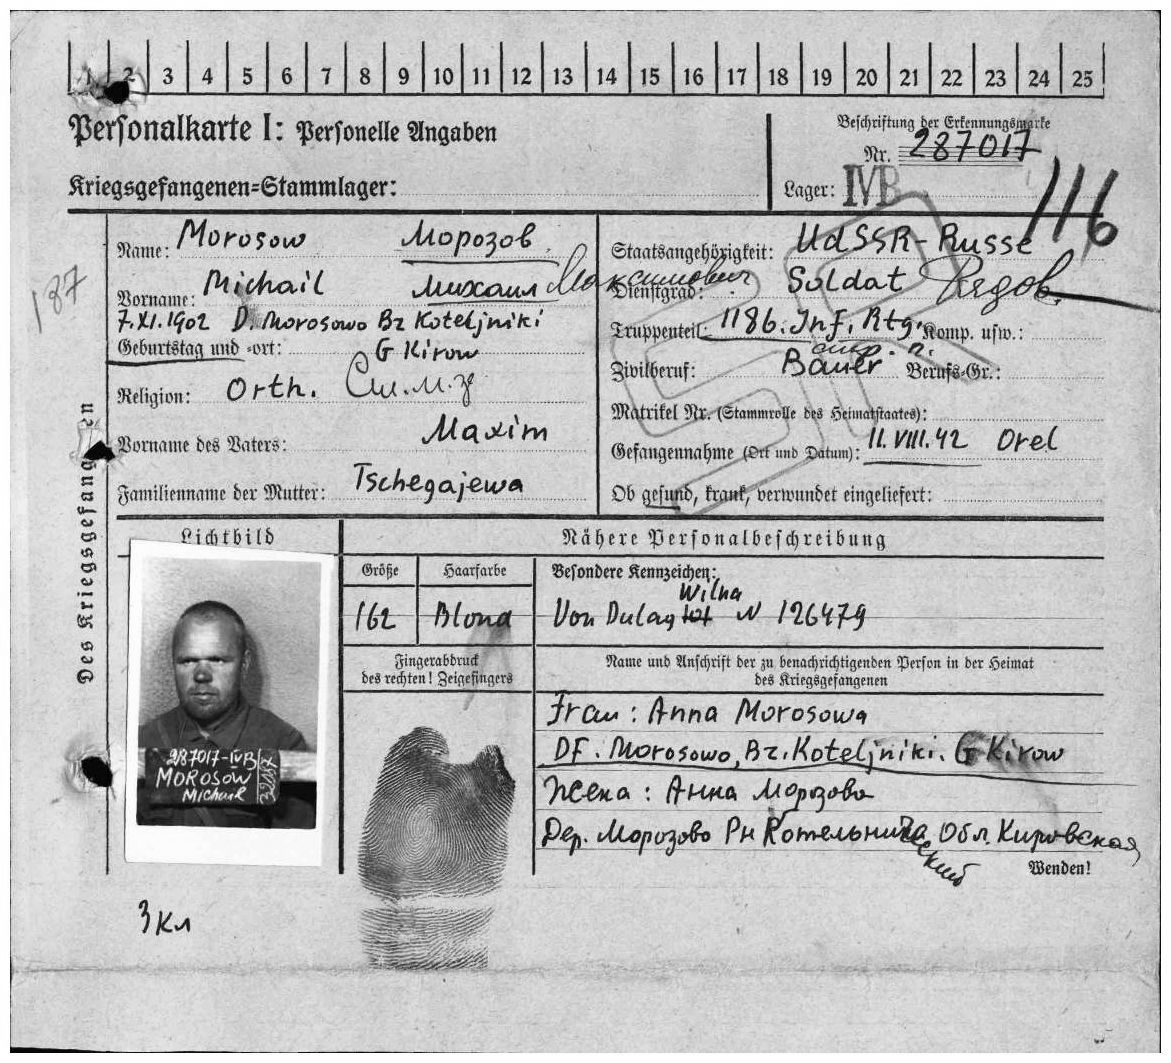 1 2 3 4 5 6 7 8 9 10 11 12 13 14 15 16 17 18 19 20 21 22 23 24 25
Personalkarte I: Personelle Angaben
Beschriftung der Erkennungsmarke
Nr. 287017
Kriegsgefangenen-Stammlager:
Lager: IVB
116
187
Des Kriegsgefangenen
Name: Morosow Морозов
Vorname: Michail Михаил Максимович
7.XI.1902 D. Morosowo Bz Koteljniki
Geburtstag und -ort: G Kirow
Religion: Orth.
Vorname des Vaters: Maxim
Familienname der Mutter: Tschegajewa
Staatsangehörigkeit: UdSSR-Russe
Dienstgrad: Soldat Рядов.
Truppenteil: 1186. Inf. Rtg. Komp. usw.:
стр. п.
Zivilberuf: Bauer Berufs-Gr.:
Matrikel Nr. (Stammrolle des Heimatstaates):
Gefangennahme (Ort und Datum): 11.VIII.42 Orel
Ob gesund, krank, verwundet eingeliefert:
Lichtbild
Nähere Personalbeschreibung
Größe Haarfarbe Besondere Kennzeichen:
162 Blond Von Dulag Wilna N 126479
Fingerabdruck
des rechten! Zeigefingers
Name und Anschrift der zu benachrichtigenden Person in der Heimat
des Kriegsgefangenen
Frau: Anna Morosowa
DF. Morosowo, Bz. Koteljniki. G Kirow
Жена: Анна Морозова
Дер. Морозово Рн Котельнический Обл. Кировская
Wenden!
287017-IVB
MOROSOW
Michail
3 кл